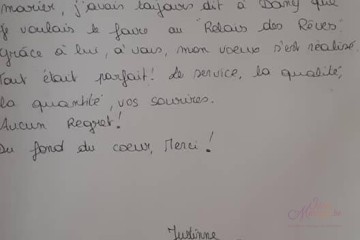 marier, j'avais toujours dit à Dany que
je voulais le faire au "Relais des Rêves".
Grâce à lui, à vous, mon voeux s'est réalisé.
Tout était parfait! Le service, la qualité,
la quantité, vos sourires.
Aucun Regret!
Du fond du coeur, Merci!
Justinne